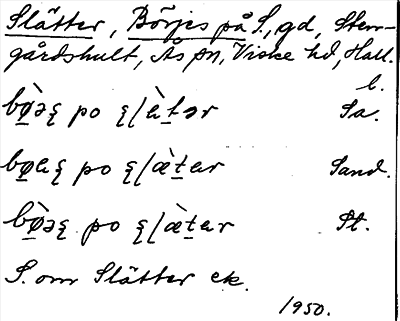 Slätter, Börjes på S., gd, Sten-
gårdshult, Ås sn, Viske hd, Hall.
l.
bö̀əʂ po ʂlæ̀tər Sa.
bøaʂ po ʂlæ̀tar Sand.
bø̀əʂ po ʂlæ̀tar St.
S. om Slätter ek.
1950.